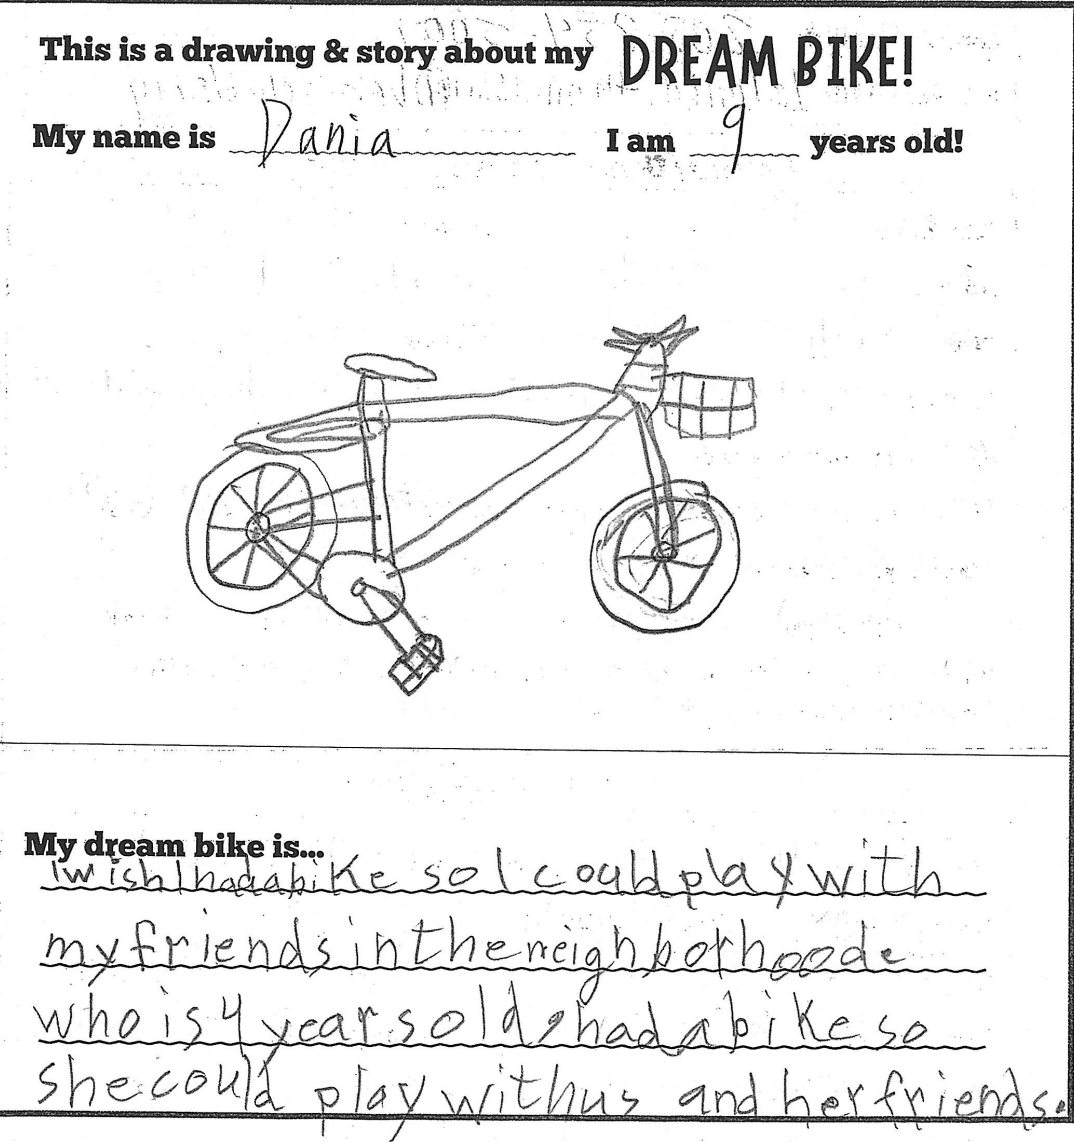 This is a drawing & story about my DREAM BIKE!
My name is Dania I am 9 years old!
My dream bike is...
I wish I had a bike so I could play with
my friends in the neighborhood.
who is 4 years old, had a bike so
she could play with us and her friends.